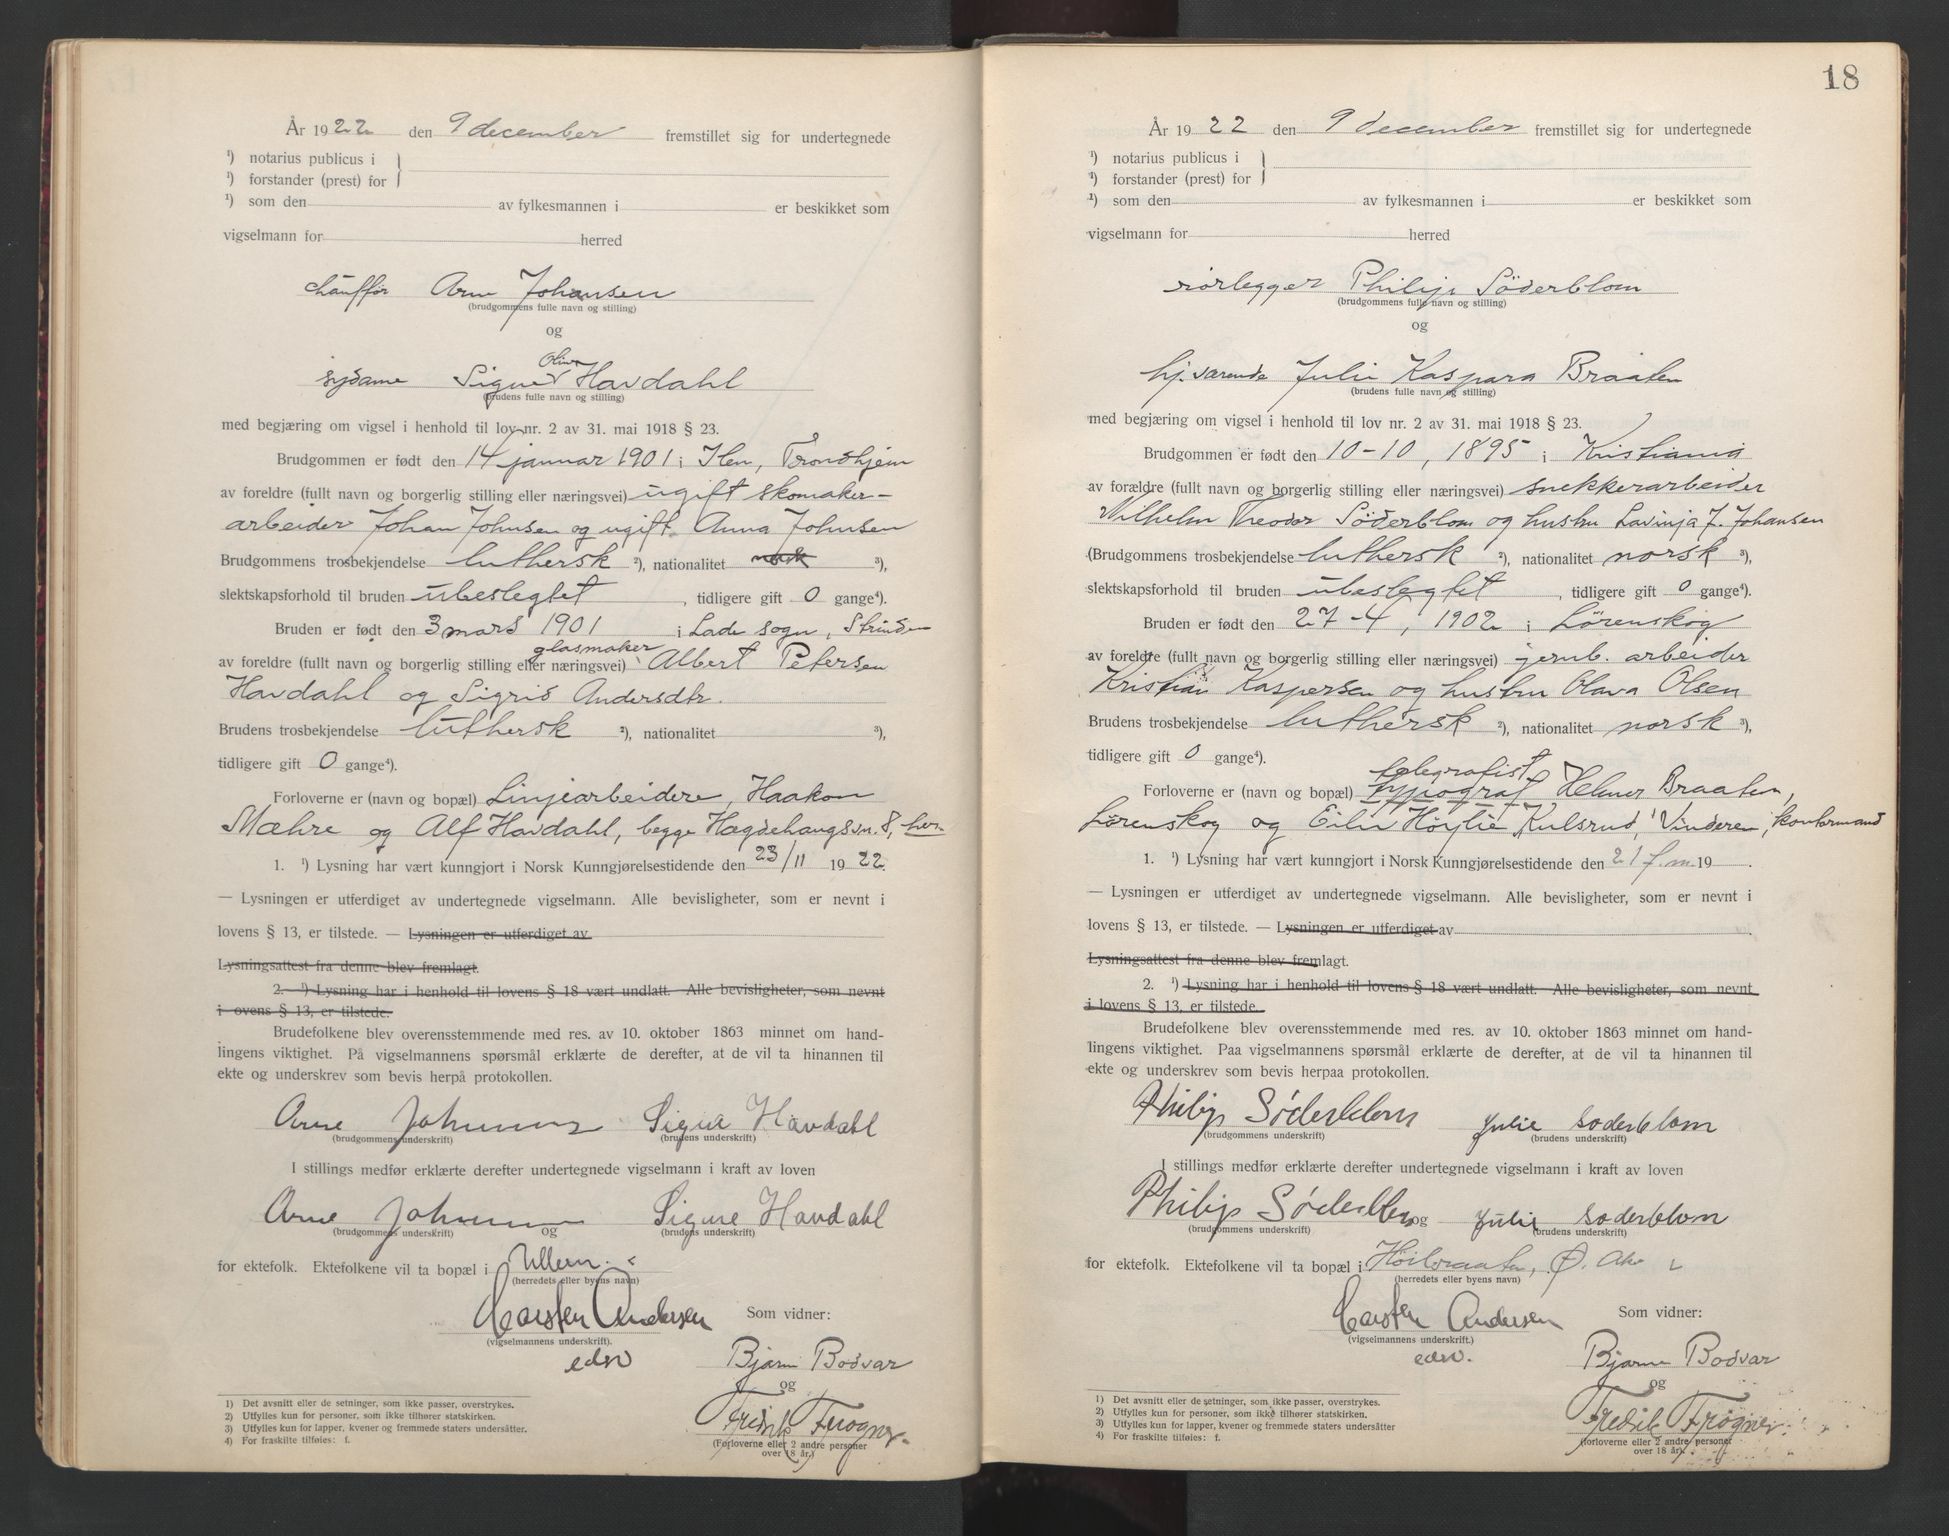 År 1922 den 9 december fremstillet sig for undertegnede
¹) notarius publicus i
¹) forstander (prest) for
¹) som den av fylkesmannen i er beskikket som
vigselmann for herred
chauffør Arne Johansen
(brudgommens fulle navn og stilling)
og
Oline
sydame Signe Havdahl
(brudens fulle navn og stilling)
med begjæring om vigsel i henhold til lov nr. 2 av 31. mai 1918 § 23.
Brudgommen er født den 14 januar 1901 i Ilen, Trondhjem
av foreldre (fullt navn og borgerlig stilling eller næringsvei) ugift skomaker-
arbeider Johan Johnsen og ugift Anna Johnsen
Brudgommens trosbekjendelse luthersk ²), nationalitet norsk ³),
slektskapsforhold til bruden ubeslegtet, tidligere gift 0 gange⁴).
Bruden er født den 3 mars 1901 i Lade sogn, Strinden
glasmaker
av foreldre (fullt navn og borgerlig stilling eller næringsvei) Albert Petersen
Havdahl og Sigrid Andersdtr.
Brudens trosbekjendelse luthersk ²), nationalitet ³),
tidligere gift 0 gange⁴).
Forloverne er (navn og bopæl) Linjearbeidere, Haakon
Mæhre og Alf Havdahl, begge Hegdehaugsvn. 8, her
1. ¹) Lysning har vært kunngjort i Norsk Kunngjørelsestidende den 23/11 1922.
— Lysningen er utferdiget av undertegnede vigselmann. Alle bevisligheter, som er nevnt i
lovens § 13, er tilstede. — Lysningen er utferdiget av
Lysningsattest fra denne blev fremlagt.
2. ¹) Lysning har i henhold til lovens § 18 vært undlatt. Alle bevisligheter, som nevnt
i ovens § 13, er tilstede.
Brudefolkene blev overensstemmende med res. av 10. oktober 1863 minnet om hand-
lingens viktighet. På vigselmannens spørsmål erklærte de derefter, at de vil ta hinannen til
ekte og underskrev som bevis herpå protokollen.
Arne Johansen Signe Havdahl
(brudgommens underskrift) (brudens underskrift)
I stillings medfør erklærte derefter undertegnede vigselmann i kraft av loven
Arne Johansen og Signe Havdahl
(brudgommens underskrift) (brudens underskrift)
for ektefolk. Ektefolkene vil ta bopæl i Ullern.
(herredets eller byens navn)
Carsten Andersen Som vidner:
(vigselmannens underskrift).
edsv Bjarne Bodvar
og
Fredrik Frogner
(Forloverne eller 2 andre personer
over 18 år.)
1) Det avsnitt eller de setninger, som ikke passer, overstrykes.
2) Utfylles kun for personer, som ikke tilhører statskirken.
3) Utfylles kun for lapper, kvener og fremmede staters undersåtter.
4) For fraskilte tilføies: f.
18
År 1922 den 9 december fremstillet sig for undertegnede
¹) notarius publicus i
¹) forstander (prest) for
¹) som den av fylkesmannen i er beskikket som
vigselmann for herred
rørlegger Philip Söderblom
(brudgommens fulle navn og stilling)
og
hj.værende Julie Kaspara Braaten
(brudens fulle navn og stilling)
med begjæring om vigsel i henhold til lov nr. 2 av 31. mai 1918 § 23.
Brudgommen er født den 10-10, 1895 i Kristiania
av forældre (fullt navn og borgerlig stilling eller næringsvei) snekkerarbeider
Wilhelm Theodor Söderblom og hustru Lavinja J. Johansen
(Brudgommens trosbekjendelse luthersk ²), nationalitet norsk ³),
slektskapsforhold til bruden ubeslegtet, tidligere gift 0 gange⁴).
Bruden er født den 27-4, 1902 i Lørenskog
av foreldre (fullt navn og borgerlig stilling eller næringsvei) jernb. arbeider
Kristian Kaspersen og hustru Olava Olsen
Brudens trosbekjendelse luthersk ²), nationalitet norsk ³),
tidligere gift 0 gange⁴).
telegrafist
Forloverne er (navn og bopæl) typograf Helmer Braaten,
Lørenskog og Eiliv Høylie Kulsrud, Vinderen, kontormand
1. ¹) Lysning har vært kunngjort i Norsk Kunngjørelsestidende den 21 f.m. 19 .
— Lysningen er utferdiget av undertegnede vigselmann. Alle bevisligheter, som er nevnt i
lovens § 13, er tilstede. — Lysningen er utferdiget av .
Lysningsattest fra denne blev fremlagt.
2. ¹) Lysning har i henhold til lovens § 18 vært undlatt. Alle bevisligheter, som nevnt
i lovens § 13, er tilstede.
Brudefolkene blev overensstemmende med res. av 10. oktober 1863 minnet om hand-
lingens viktighet. Paa vigselmannens spørsmål erklærte de derefter, at de vil ta hinannen til
ekte og underskrev som bevis herpaa protokollen.
Philip Søderblom Julie Soderblom
(brudgommens underskrift) (brudens underskrift)
I stillings medfør erklærte derefter undertegnede vigselmann i kraft av loven
Philip Søderblom og Julie Soderblom
(brudgommens underskrift) (brudens underskrift)
for ektefolk. Ektefolkene vil ta bopæl i Høibraaten, Ø. Aker
(herredets eller byens navn)
Carsten Andersen Som vidner:
(vigselmannens underskrift.)
edsv. Bjarne Bodvar
og
Fredrik Frogner
(forloverne eller 2 andre personer
over 18 år).
1) Det avsnitt eller de setninger, som ikke passer, overstrykes.
2) Utfylles kun for personer, som ikke tilhører statskirken.
3) Utfylles kun for lapper, kvener og fremmede staters undersåtter
4) For fraskilte tilføies: f.